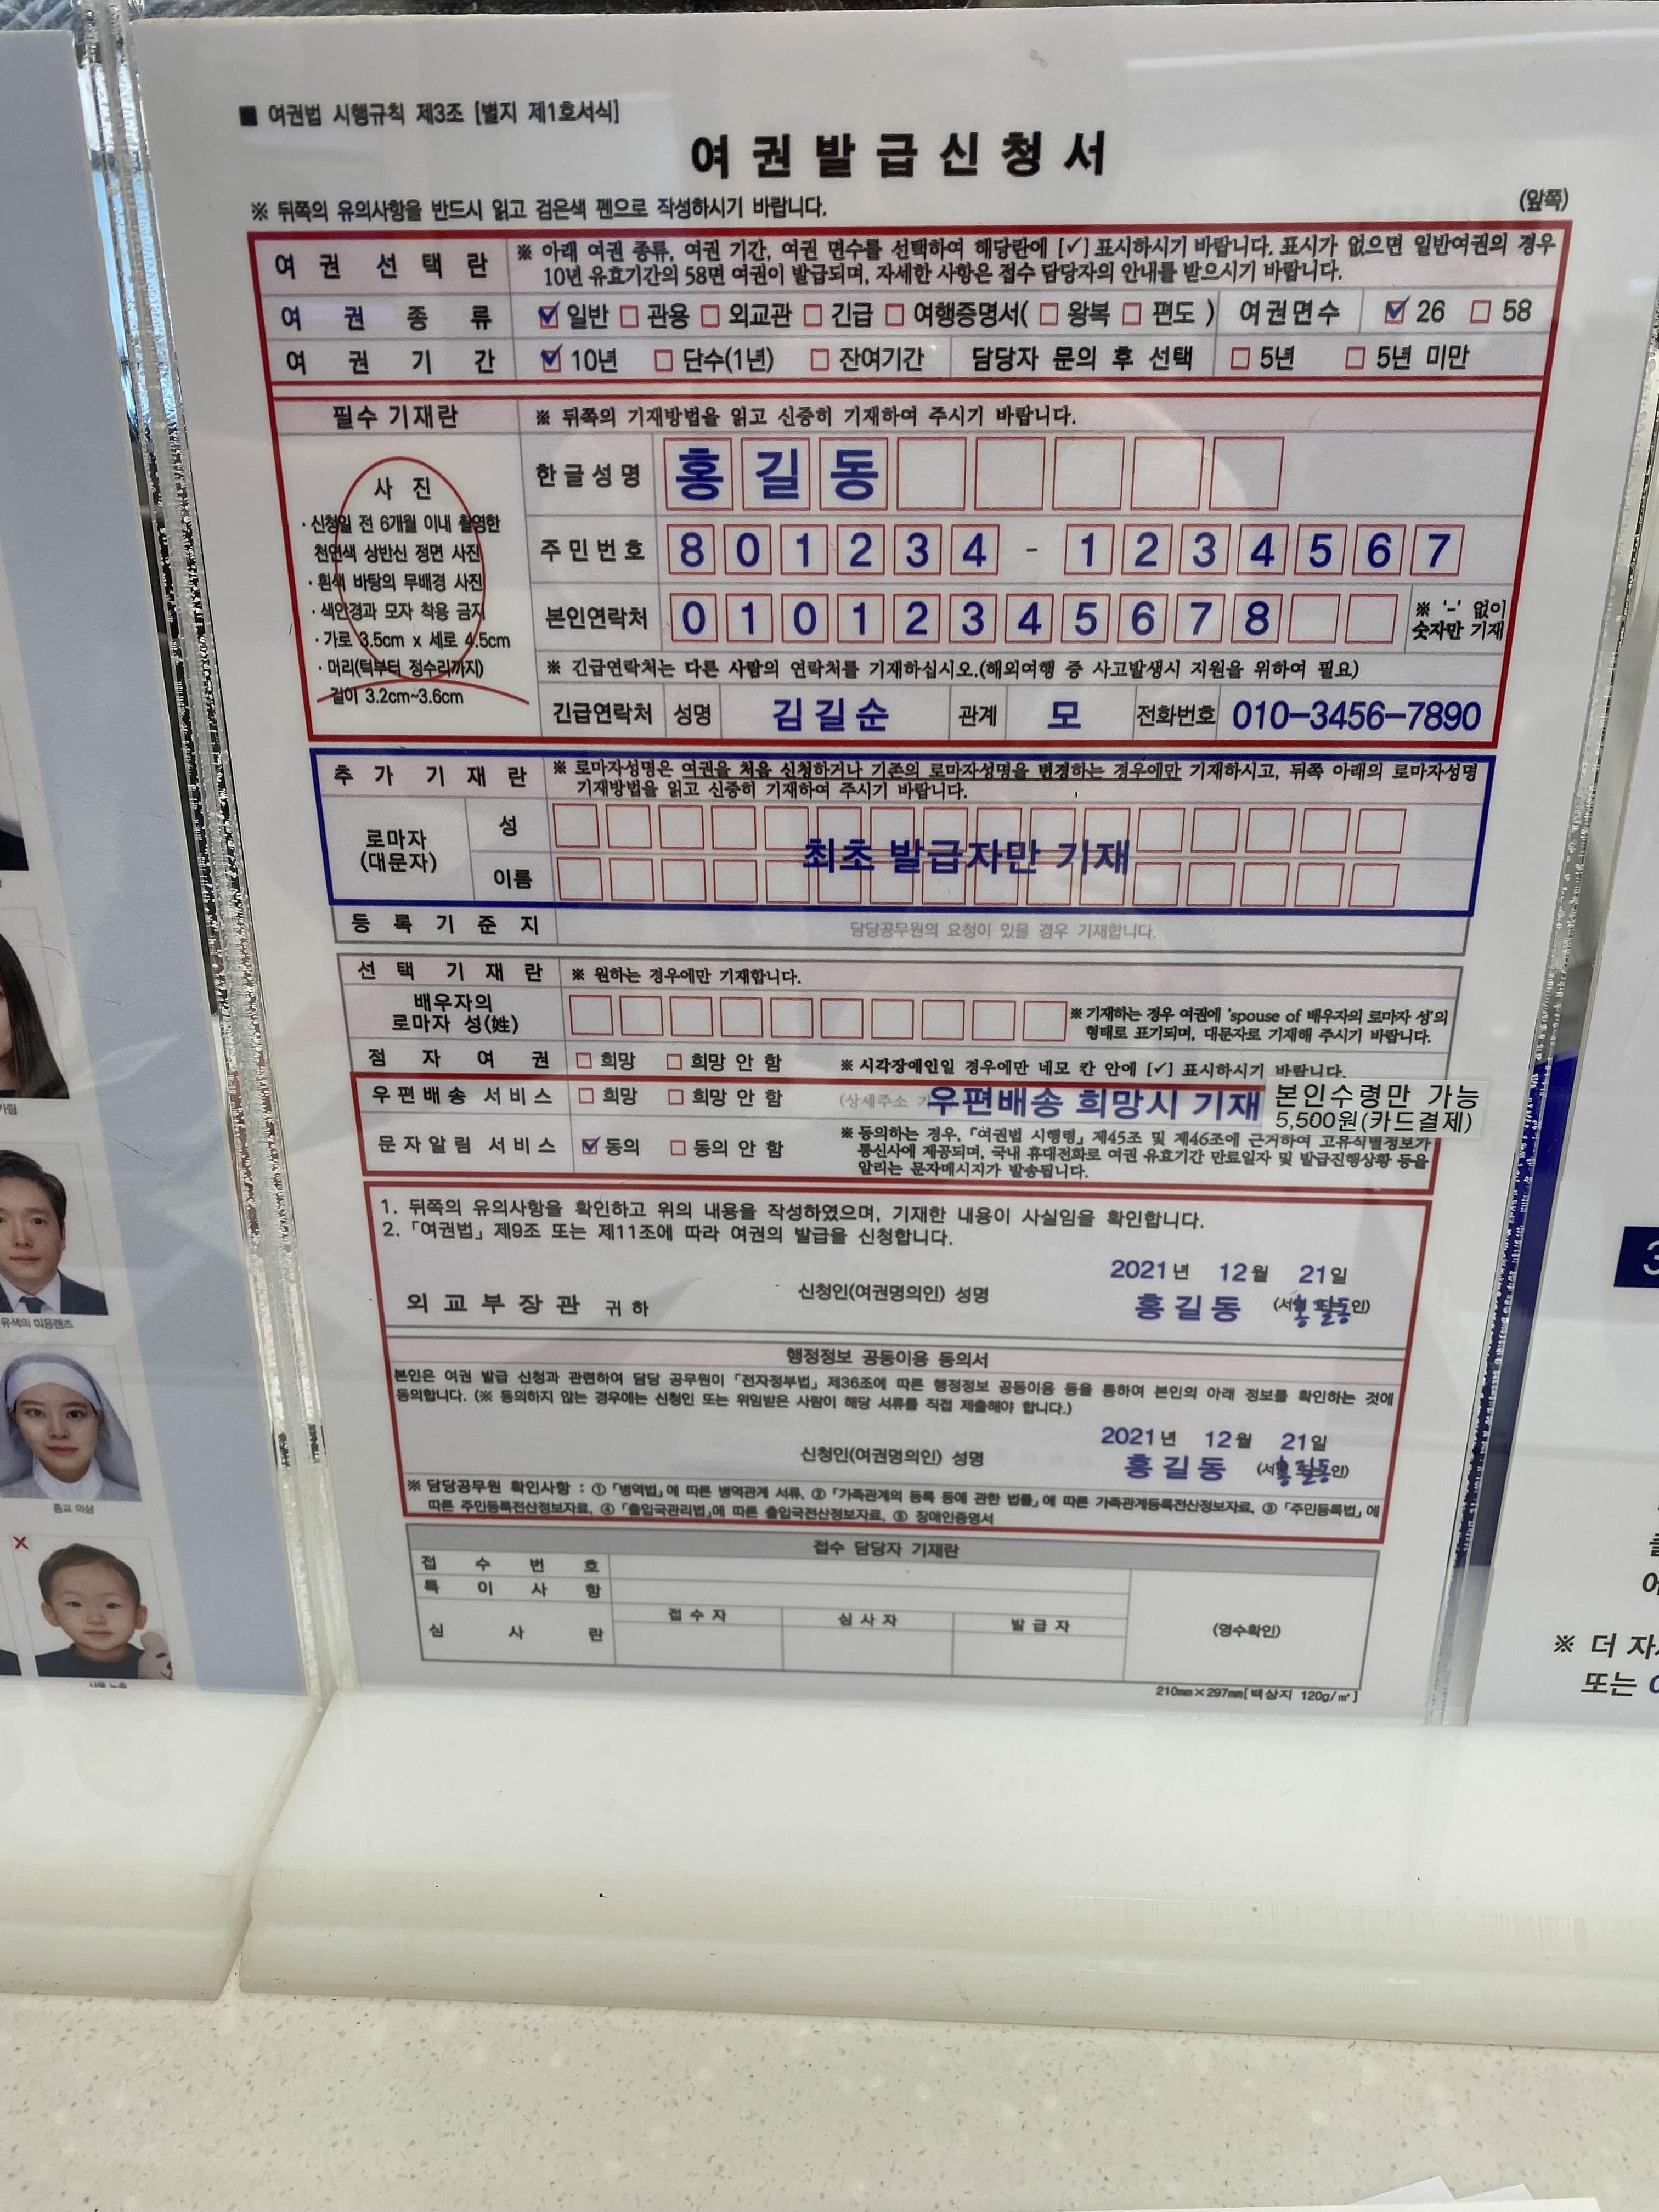 ■ 여권법 시행규칙 제3조 [별지 제1호서식]
여권발급신청서
※ 뒤쪽의 유의사항을 반드시 읽고 검은색 펜으로 작성하시기 바랍니다.
(앞쪽)
여 권 선 택 란
※ 아래 여권 종류, 여권 기간, 여권 면수를 선택하여 해당란에 [✓] 표시하시기 바랍니다. 표시가 없으면 일반여권의 경우
10년 유효기간의 58면 여권이 발급되며, 자세한 사항은 접수 담당자의 안내를 받으시기 바랍니다.
여 권 종 류 ☑ 일반 □ 관용 □ 외교관 □ 긴급 □ 여행증명서( □ 왕복 □ 편도 ) 여권면수 ☑ 26 □ 58
여 권 기 간 ☑ 10년 □ 단수(1년) □ 잔여기간 담당자 문의 후 선택 □ 5년 □ 5년 미만
필수 기재란 ※ 뒤쪽의 기재방법을 읽고 신중히 기재하여 주시기 바랍니다.
사 진
· 신청일 전 6개월 이내 촬영한
천연색 상반신 정면 사진
· 흰색 바탕의 무배경 사진
· 색안경과 모자 착용 금지
· 가로 3.5cm x 세로 4.5cm
· 머리(턱부터 정수리까지)
길이 3.2cm~3.6cm
한글성명 홍 길 동
주민번호 8 0 1 2 3 4 - 1 2 3 4 5 6 7
본인연락처 0 1 0 1 2 3 4 5 6 7 8
※ '-' 없이
숫자만 기재
※ 긴급연락처는 다른 사람의 연락처를 기재하십시오.(해외여행 중 사고발생시 지원을 위하여 필요)
긴급연락처 성명 김길순 관계 모 전화번호 010-3456-7890
추 가 기 재 란
※ 로마자성명은 여권을 처음 신청하거나 기존의 로마자성명을 변경하는 경우에만 기재하시고, 뒤쪽 아래의 로마자성명
기재방법을 읽고 신중히 기재하여 주시기 바랍니다.
로마자
(대문자)
성
이름
최초 발급자만 기재
등 록 기 준 지 담당공무원의 요청이 있을 경우 기재합니다.
선 택 기 재 란 ※ 원하는 경우에만 기재합니다.
배우자의
로마자 성(姓)
※ 기재하는 경우 여권에 'spouse of 배우자의 로마자 성'의
형태로 표기되며, 대문자로 기재해 주시기 바랍니다.
점 자 여 권 □ 희망 □ 희망 안 함 ※ 시각장애인일 경우에만 네모 칸 안에 [✓] 표시하시기 바랍니다.
우편배송 서비스 □ 희망 □ 희망 안 함 (상세주소 우편배송 희망시 기재
본인수령만 가능
5,500원(카드결제)
문자알림 서비스 ☑ 동의 □ 동의 안 함
※ 동의하는 경우, 「여권법 시행령」 제45조 및 제46조에 근거하여 고유식별정보가
통신사에 제공되며, 국내 휴대전화로 여권 유효기간 만료일자 및 발급진행상황 등을
알리는 문자메시지가 발송됩니다.
1. 뒤쪽의 유의사항을 확인하고 위의 내용을 작성하였으며, 기재한 내용이 사실임을 확인합니다.
2. 「여권법」 제9조 또는 제11조에 따라 여권의 발급을 신청합니다.
2021년 12월 21일
신청인(여권명의인) 성명 홍길동 (서 인) 홍길동
외교부장관 귀하
행정정보 공동이용 동의서
본인은 여권 발급 신청과 관련하여 담당 공무원이 「전자정부법」 제36조에 따른 행정정보 공동이용 등을 통하여 본인의 아래 정보를 확인하는 것에
동의합니다. (※ 동의하지 않는 경우에는 신청인 또는 위임받은 사람이 해당 서류를 직접 제출해야 합니다.)
2021년 12월 21일
신청인(여권명의인) 성명 홍길동 (서 인) 홍길동
※ 담당공무원 확인사항 : ① 「병역법」에 따른 병역관계 서류, ② 「가족관계의 등록 등에 관한 법률」에 따른 가족관계등록전산정보자료, ③ 「주민등록법」에
따른 주민등록전산정보자료, ④ 「출입국관리법」에 따른 출입국전산정보자료, ⑤ 장애인증명서
접수 담당자 기재란
접 수 번 호
특 이 사 항
심 사 란
접수자 심사자 발급자
(영수확인)
210mm×297mm[백상지 120g/㎡]
유색의 미용렌즈
종교 의상
※ 더 자
또는